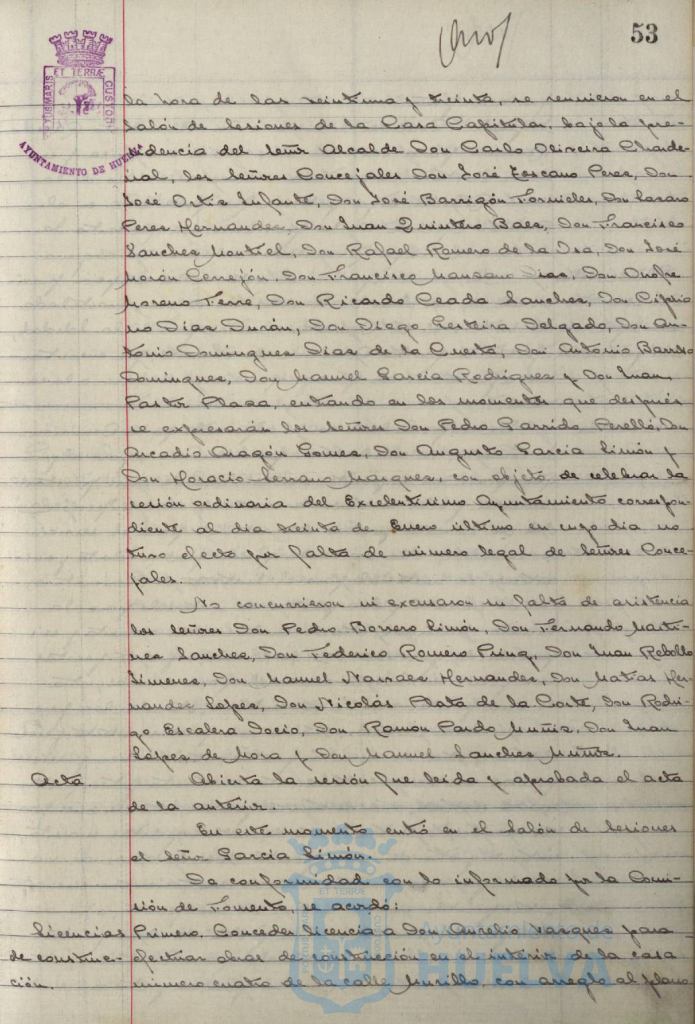 53
PORTUS MARIS ET TERRÆ CUSTODIA
AYUNTAMIENTO DE HUELVA
la hora de las veintiuna y treinta, se reunieron en el
Salón de Sesiones de la Casa Capitular, bajo la pre-
sidencia del Señor Alcalde Don Carlo Oliveira Charde-
nal, los Señores Concejales Don José Toscano Perez, Don
José Ortiz Infante, Don José Barrigón Fornieles, Don Lazaro
Perez Hernandez, Don Juan Quintero Baez, Don Francisco
Sanchez Montiel, Don Rafael Romero de la Osa, Don José
Morón Cerrejón, Don Francisco Manzano Dias, Don Onofre
Moreno Ferre, Don Ricardo Ceada Sanchez, Don Cipria
no Dias Durán, Don Diego Delgado, Don An-
tonio Dominguez Dias de la Cuesta, Don Antonio Barroso
Dominguez, Don Manuel Garcia Rodriguez y Don Juan
Pastor Plaza, entrando en los momentos que después
se expresarán los Señores Don Pedro Garrido Perelló, Don
Arcadio Aragón Gomez, Don Augusto Garcia Simón y
Don Horacio Serrano Marquez, con objeto de celebrar la
sesión ordinaria del Excelentísimo Ayuntamiento correspon-
diente al dia treinta de Enero último en cuyo dia no
tuvo efecto por falta de número legal de Señores Conce-
jales.
No concurrieron ni excusaron su falta de asistencia
los Señores Don Pedro Borrero Limón, Don Fernando Marti-
nez Sanchez, Don Federico Romero Don Juan Rebollo
Jimenez, Don Manuel Narvaez Hernandez, Don Matías Her-
nandez Lopez, Don Nicolás Plata de la Corte, Don Rodri-
go Escalera Docio, Don Ramón Pardo Muñiz, Don Juan
López de Mora y Don Manuel Sanchez Muñiz.
Acta. Abierta la sesión fue leída y aprobada el acta
de la anterior.
En este momento entró en el Salón de Sesiones
el Señor Garcia Simón.
De conformidad con lo informado por la Comi-
sión de Fomento, se acordó:
Licencias Primero. Conceder licencia a Don Aurelio Vazquez para
de construc- efectuar obras de construcción en el interior de la casa
ción. número cuatro de la calle Murillo, con arreglo al plano
Ayuntamiento de
HUELVA